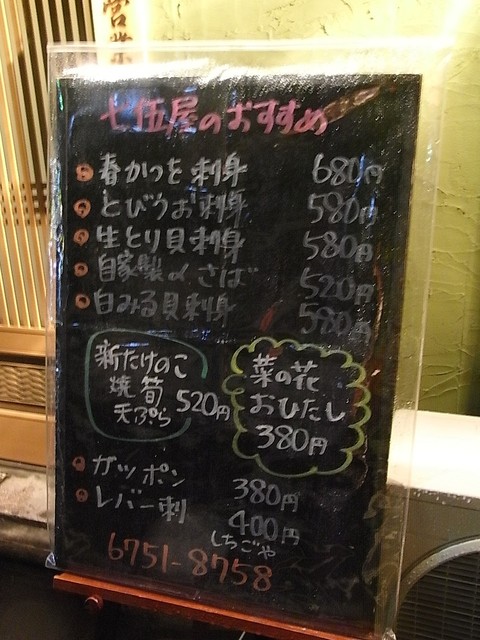 営業
七伍屋のおすすめ
春かつを刺身 680円
とびうお刺身 580円
生とり貝刺身 580円
自家製〆さば 520円
白みる貝刺身 580円
新たけのこ
焼筍
天ぷら 520円
菜の花
おひたし
380円
ガツポン 380円
レバー刺 400円
しちごや
6751-8758